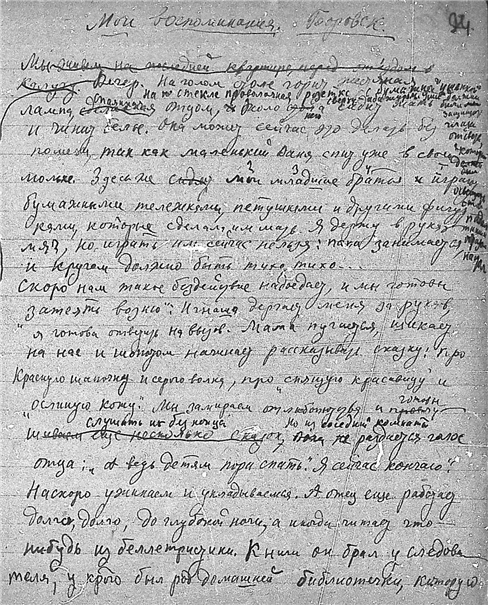 Мои воспоминания. Боровск.
Мы живем на последней квартире, перед отъездом в
Калугу. Вечер. На голом столе горит жестяная
на стекле проволочная розетка с бумажной
лампа, отцом, а около сидит мать
и чинит белье. Она может сейчас это делать без
помехи, так как маленький Ваня спит уже в своей
люльке. Здесь же мои младшие братья и я играем
бумажными тележками, петушками и другими фигур
ками, которые сделал им папа. Я держу в руках
мяч, но играть им сейчас нельзя: папа занимается,
и кругом должно быть тихо, тихо...
Скоро нам такое бездействие надоедает, и мы готовы
затеять возню. Игнаша дергает меня за рукав,
я готова ответить на вызов. Мама пугается, шикает
на нас и шопотом начинает рассказывать сказку: "про
Красную шапочку и серого волка, про "спящую красавицу" и
"ослиную кожу". Мы замираем от любопытства и готовы
слушать их без конца Но из соседней комнаты
еще несколько сказок, раздается голос
отца: "А ведь детям пора спать." Я сейчас кончаю"
Наскоро ужинаем и укладываемся. А отец еще работает
долго, долго, до глубокой ночи, а иногда читает что-
нибудь из беллетристики. Книги он брал у следова
теля, у кого был род домашней библиотечки, которую